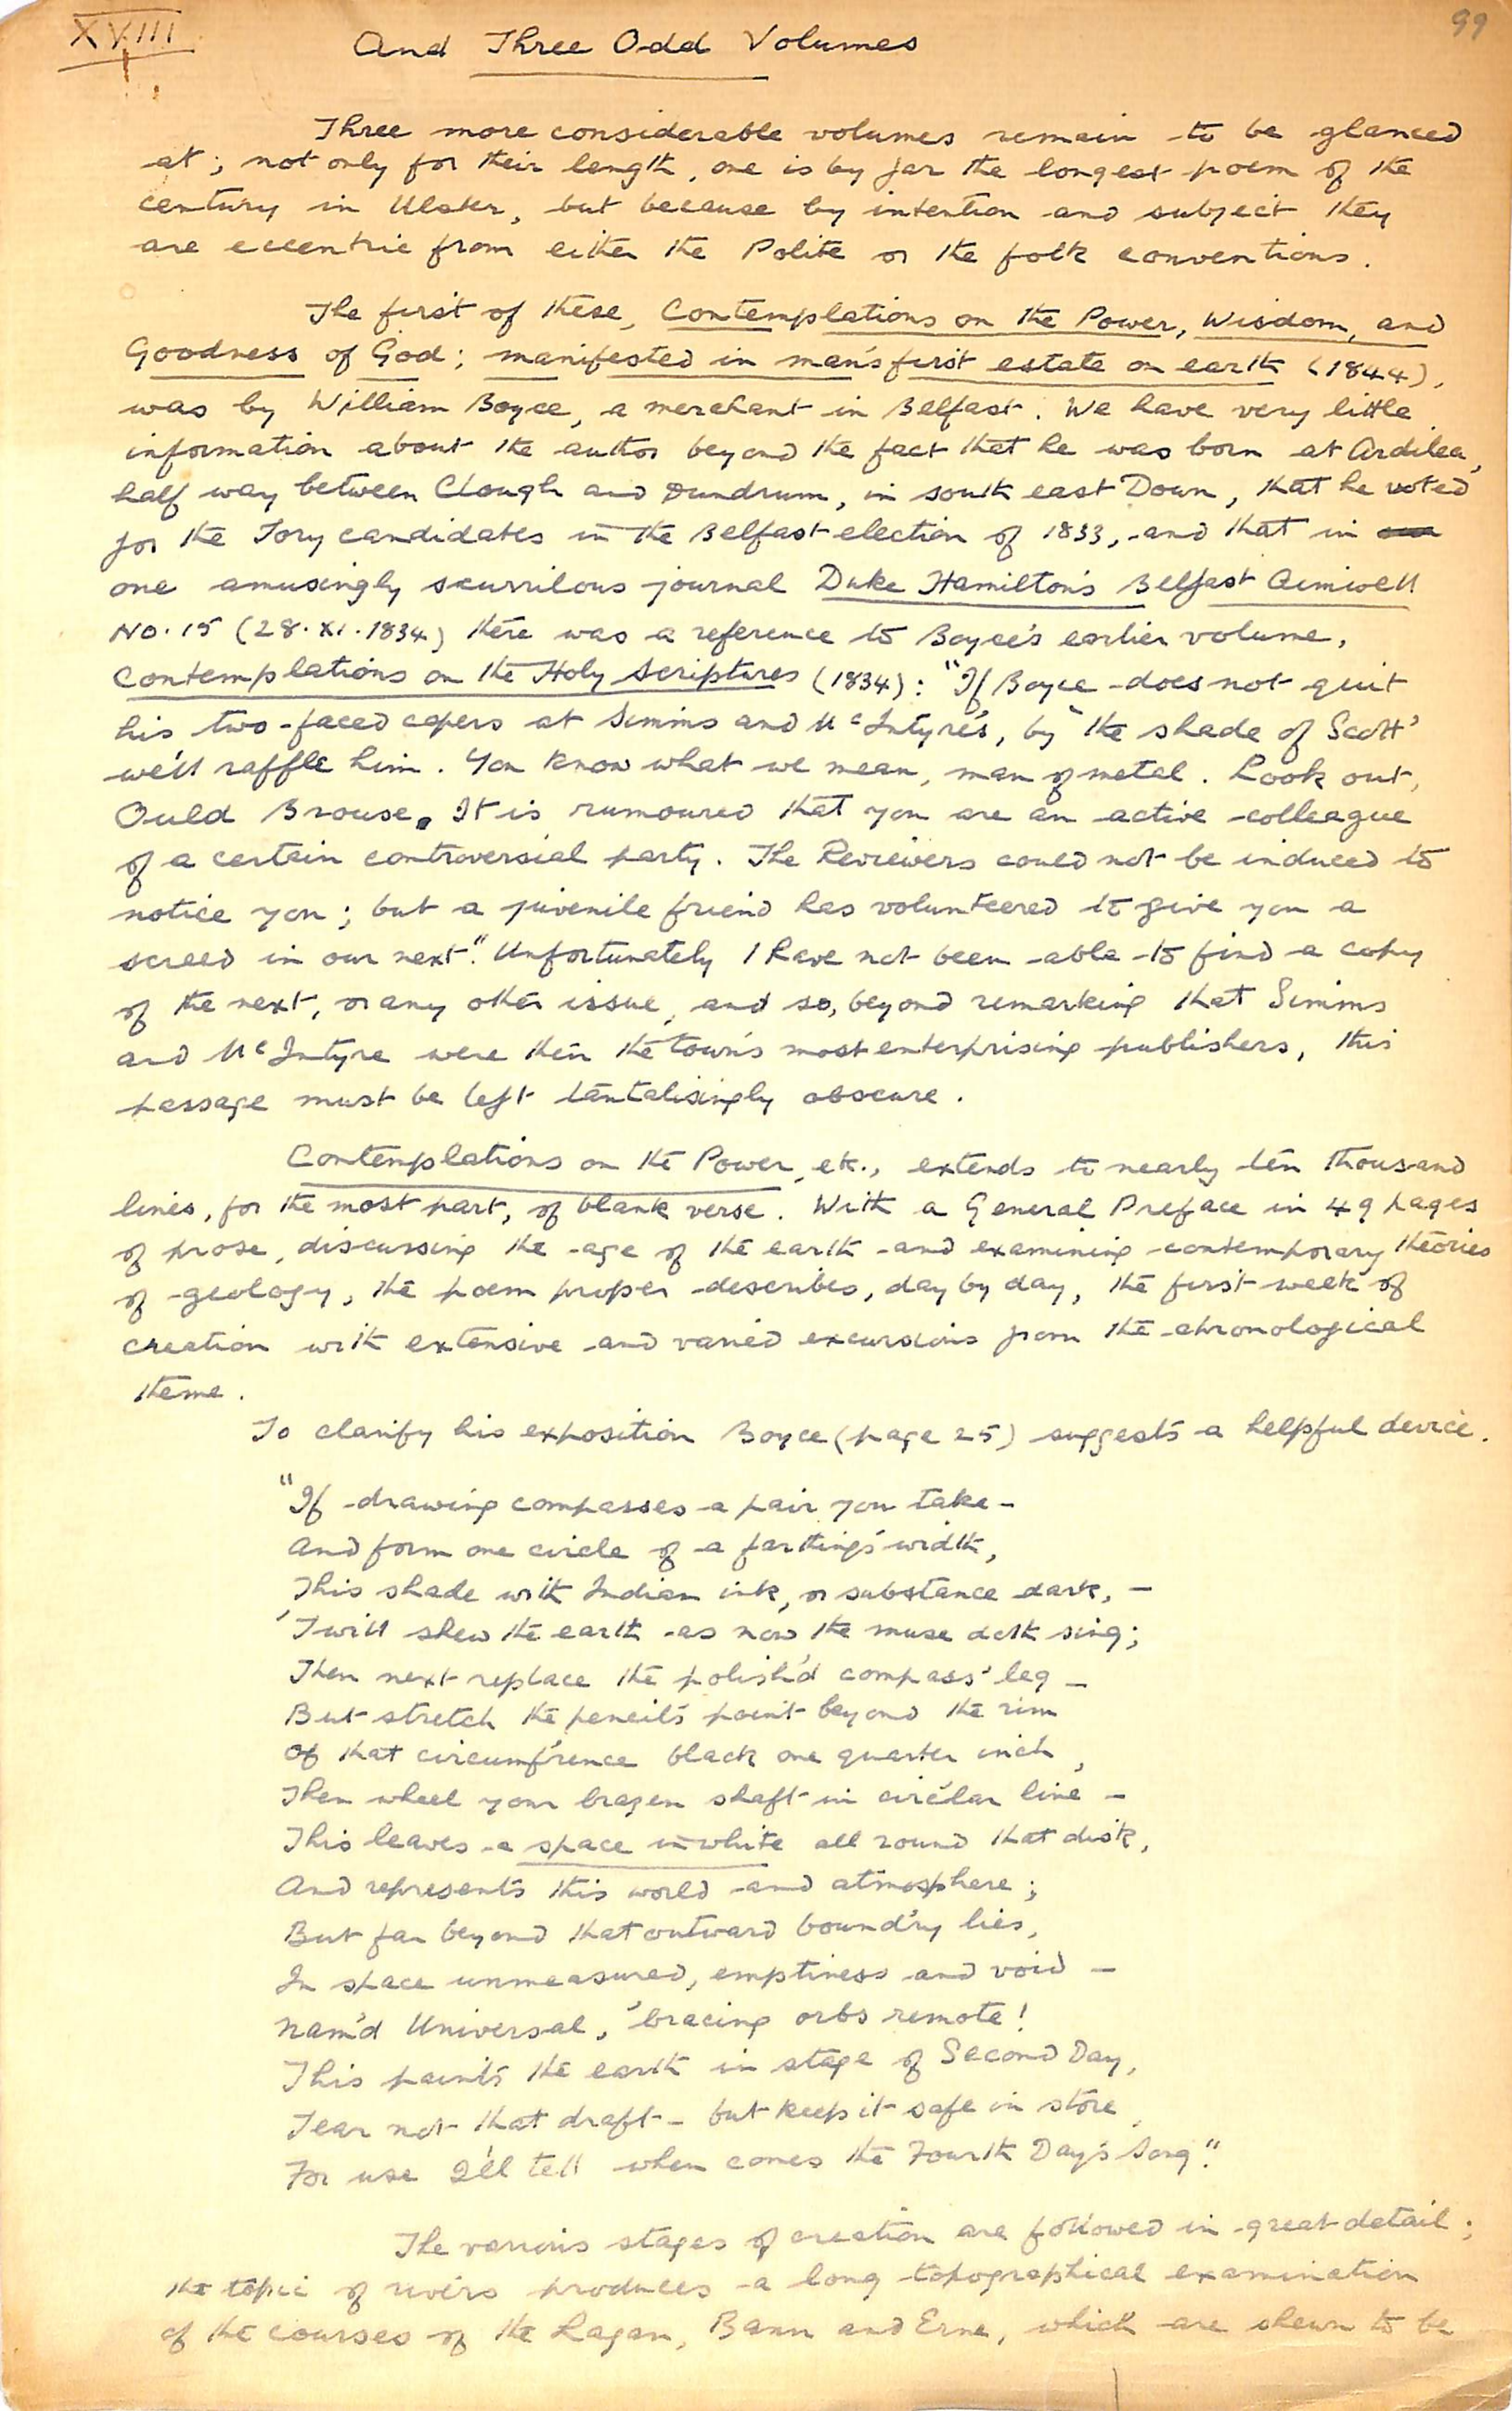 XVIII
99
And Three Odd Volumes
Three more considerable volumes remain to be glanced
at; not only for their length, one is by far the longest poem of the
century in Ulster, but because by intention and subject they
are eccentric from either the Polite or the folk conventions.
The first of these, Contemplations on the Power, Wisdom, and
Goodness of God; manifested in man's first estate on earth (1844),
was by William Boyce, a merchant in Belfast. We have very little
information about the author beyond the fact that he was born at Ardilea,
half way between Clough and Dundrum, in south east Down, that he voted
for the Tory candidates in the Belfast election of 1833, and that in
one amusingly scurrilous journal Duke Hamilton's Belfast Aimwell
No. 15 (28.XI.1834) there was a reference to Boyce's earlier volume,
Contemplations on the Holy Scriptures (1834): "If Boyce does not quit
his two-faced capers at Simms and McIntyre's, by 'the shade of Scott'
we'll raffle him. You know what we mean, man of metal. Look out,
Ould Brouse. It is rumoured that you are an active colleague
of a certain controversial party. The Reviewers could not be induced to
notice you; but a juvenile friend has volunteered to give you a
screed in our next." Unfortunately I have not been able to find a copy
of the next, or any other issue, and so, beyond remarking that Simms
and McIntyre were then the town's most enterprising publishers, this
passage must be left tantalisingly obscure.
Contemplations on the Power, etc., extends to nearly ten thousand
lines, for the most part, of blank verse. With a General Preface in 49 pages
of prose, discussing the age of the earth and examining contemporary theories
of geology, the poem proper describes, day by day, the first week of
creation with extensive and varied excursions from the chronological
theme.
To clarify his exposition Boyce (page 25) suggests a helpful device.
"If drawing compasses a pair you take –
And form one circle of a farthing's width,
This shade with Indian ink, or substance dark, –
'Twill shew the earth as now the muse doth sing;
Then next replace the polish'd compass' leg –
But stretch the pencil's point beyond the rim
Of that circumf'rence black one quarter inch,
Then wheel your brazen shaft in circ'lar line –
This leaves a space in white all round that disk,
And represents this world and atmosphere;
But far beyond that outward bound'ry lies,
In space unmeasured, emptiness and void –
Nam'd Universal, 'bracing orbs remote!
This paints the earth in stage of Second Day,
Tear not that draft – but keep it safe in store,
For use I'll tell when comes the Fourth Day's Song."
The various stages of creation are followed in great detail;
the topic of rivers produces a long topographical examination
of the courses of the Lagan, Bann and Erne, which are shewn to be